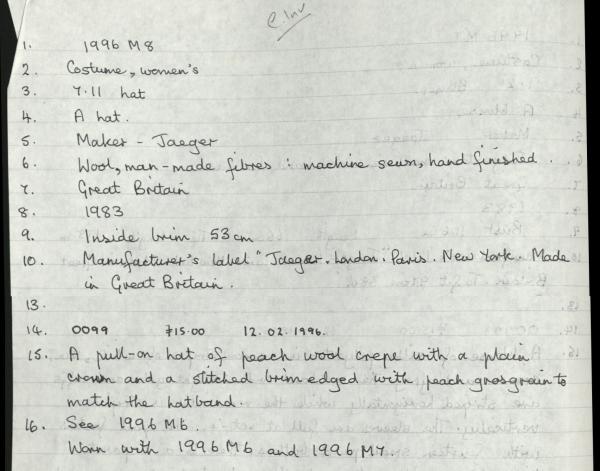 e.Inv
1. 1996 M8
2. Costume, women's
3. 7.11 hat
4. A hat.
5. Maker - Jaeger
6. Wool, man-made fibres : machine sewn, hand finished.
7. Great Britain
8. 1983
9. Inside brim 53 cm
10. Manufacturer's label "Jaeger. London. Paris. New York. Made
in Great Britain.
13.
14. 0099 £15.00 12.02.1996.
15. A pull-on hat of peach wool crepe with a plain
crown and a stitched brim edged with peach grosgrain to
match the hatband.
16. See 1996 M6.
Worn with 1996 M6 and 1996 M7.